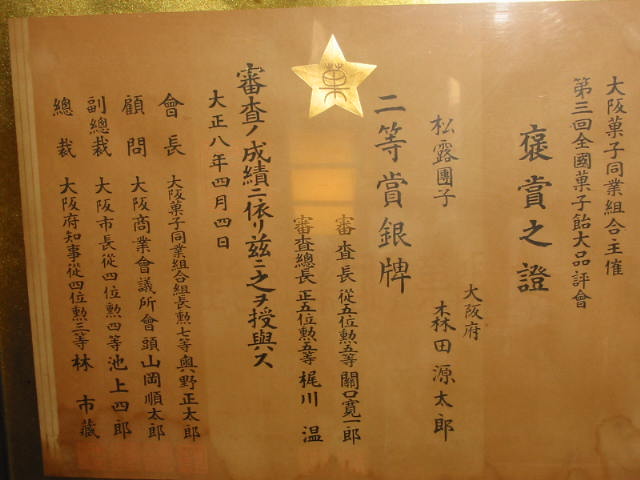 大阪菓子同業組合主催
第三回全國菓子飴大品評會
褒賞之證
大阪府
森田源太郎
松露團子
二等賞銀牌
菓
審査長從五位勲六等關口寛一郎
審査總長正五位勲五等梶川温
審査ノ成績ニ依リ茲ニ之ヲ授與ス
大正八年四月四日
會長 大阪菓子同業組合組長勲七等奥野正太郎
顧問 大阪商業會議所會頭山岡順太郎
副總裁 大阪市長從四位勲四等池上四郎
總裁 大阪府知事從四位勲三等林市藏